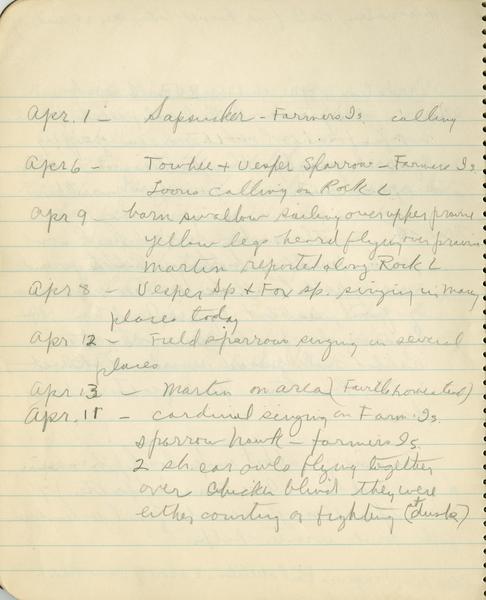 Apr. 1 - Sapsucker - Farmers Is. calling
Apr 6 - Towhee + Vesper Sparrow - Farmers Is.
Loons calling on Rock L
Apr 9 - barn swallow sailing over upper prairie
yellow legs heard flying over prairie
Martin reported along Rock L
Apr 8 - Vesper Sp + Fox sp. singing in many
places today
Apr. 12 - Field sparrows singing in several
places
Apr. 13 - Martin on area (Faville homestead)
Apr. 11 - cardinal singing on Farm. Is.
sparrow hawk - farmers Is.
2 sh. ear owls flying together
over chicken blind they were
either courting or fighting (at dusk)